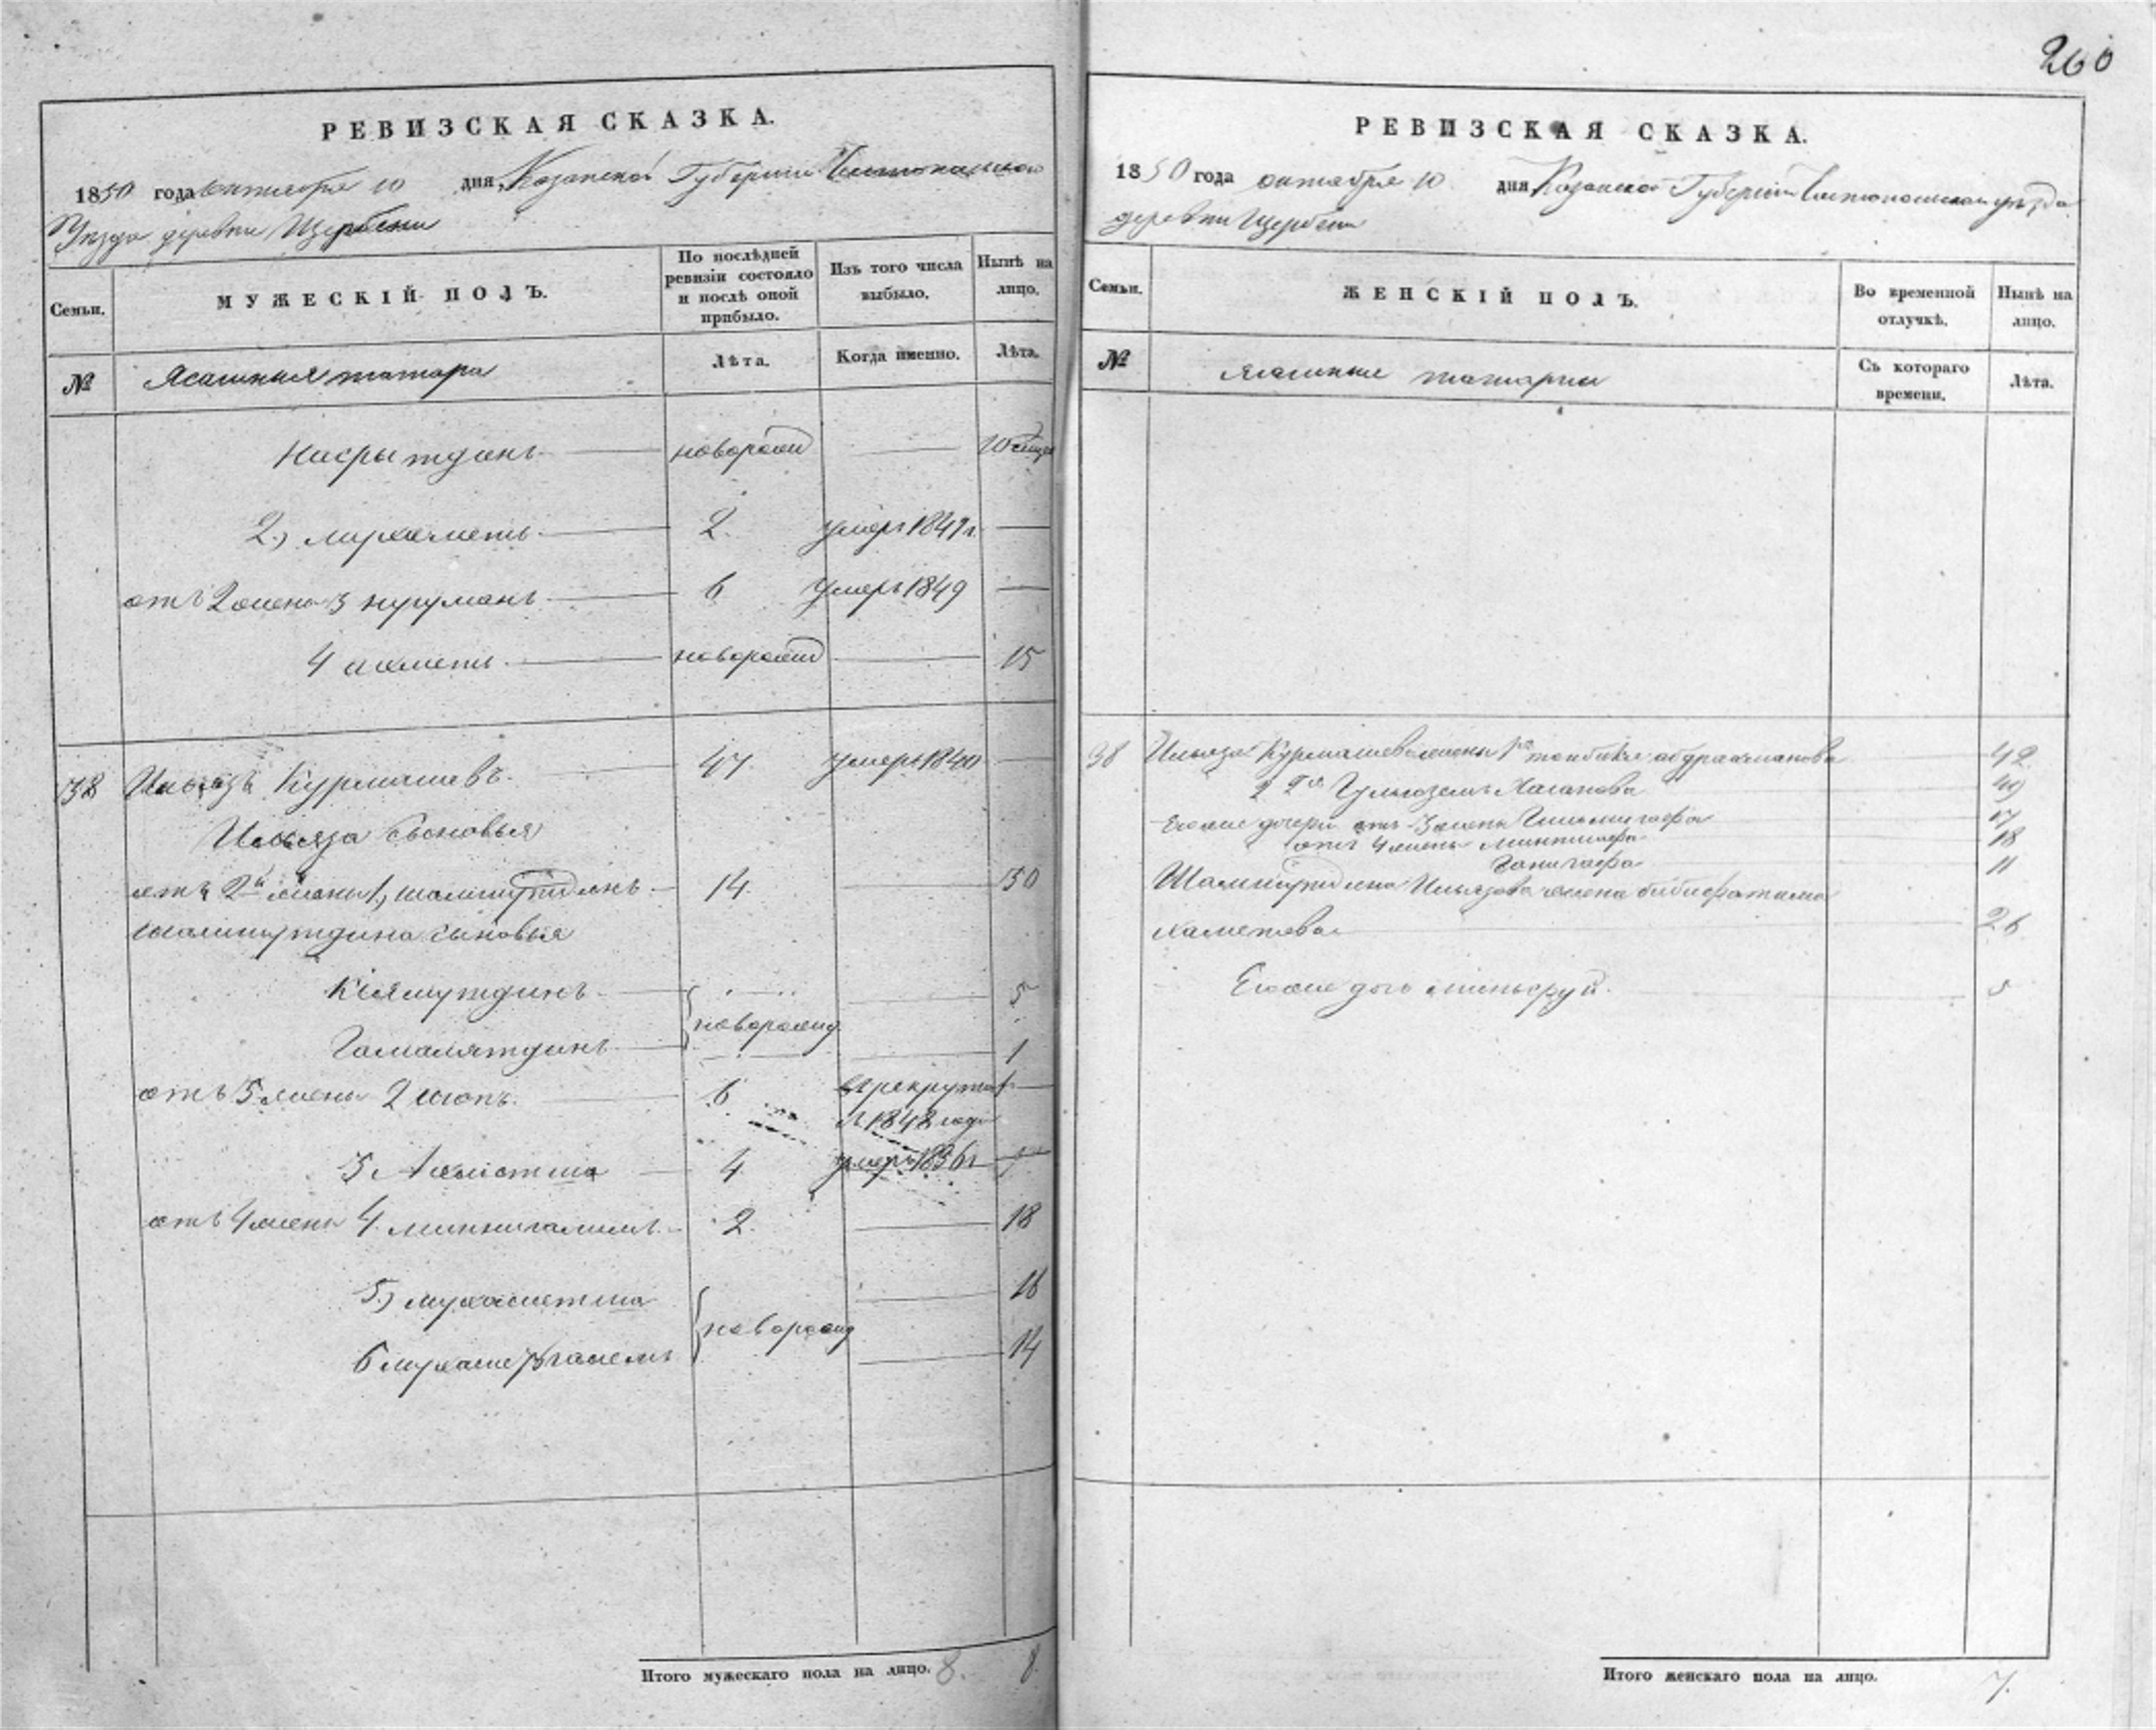 260
РЕВИЗСКАЯ СКАЗКА.
1850 года октября 10 дня, Казанской Губернии Чистопольскаго
Уезда деревни Щербени
Семьи.
МУЖЕСКІЙ ПОЛЪ.
По послѣдней
ревизіи состояло
и послѣ оной
прибыло.
Изъ того числа
выбыло.
Нынѣ на
лицо.
№
Ясашныя татара
Лѣта.
Когда именно.
Лѣта.
Насрытдинъ новорожд 10
2) 2 умеръ 184
отъ 2 жены 3 нугуманъ 6 умеръ 1849
4 ахметь новорожд 15
38 Ильязъ Курмашевъ 47 умеръ 1840
Ильяза Сыновья
отъ 2й жены 1, шамшутдинъ 14 30
шамшутдина сыновья
Кіямутдинъ 5
новорожд
Гамалятдинъ 1
отъ 5 жены 2 6 в рекруты
в 1848 году
3 Ахметша 4 умеръ 1836г
отъ 4 жены 4 миннигалимъ 2 18
5) мухаметша 16
новорожд
6 14
Итого мужескаго пола на лицо. 8. 8.
РЕВИЗСКАЯ СКАЗКА.
1850 года октября 10 дня Казанской Губерніи Чистопольскаго уезда
деревни Щербени
Семьи.
ЖЕНСКІЙ ПОЛЪ.
Во временной
отлучкѣ.
Нынѣ на
лицо.
№
Ясашные татарки
Съ котораго
времени.
Лѣта.
38 Ильяза Курмашева жены 1я абдрахманова 42
2я Хасанова 49
Егоже дочери отъ 3 жены 17
отъ 4 жены 18
11
Шамшутдина Ильязова жена бибифатима
Хаметева 26
Егоже дочь 5
Итого женскаго пола на лицо. 7.